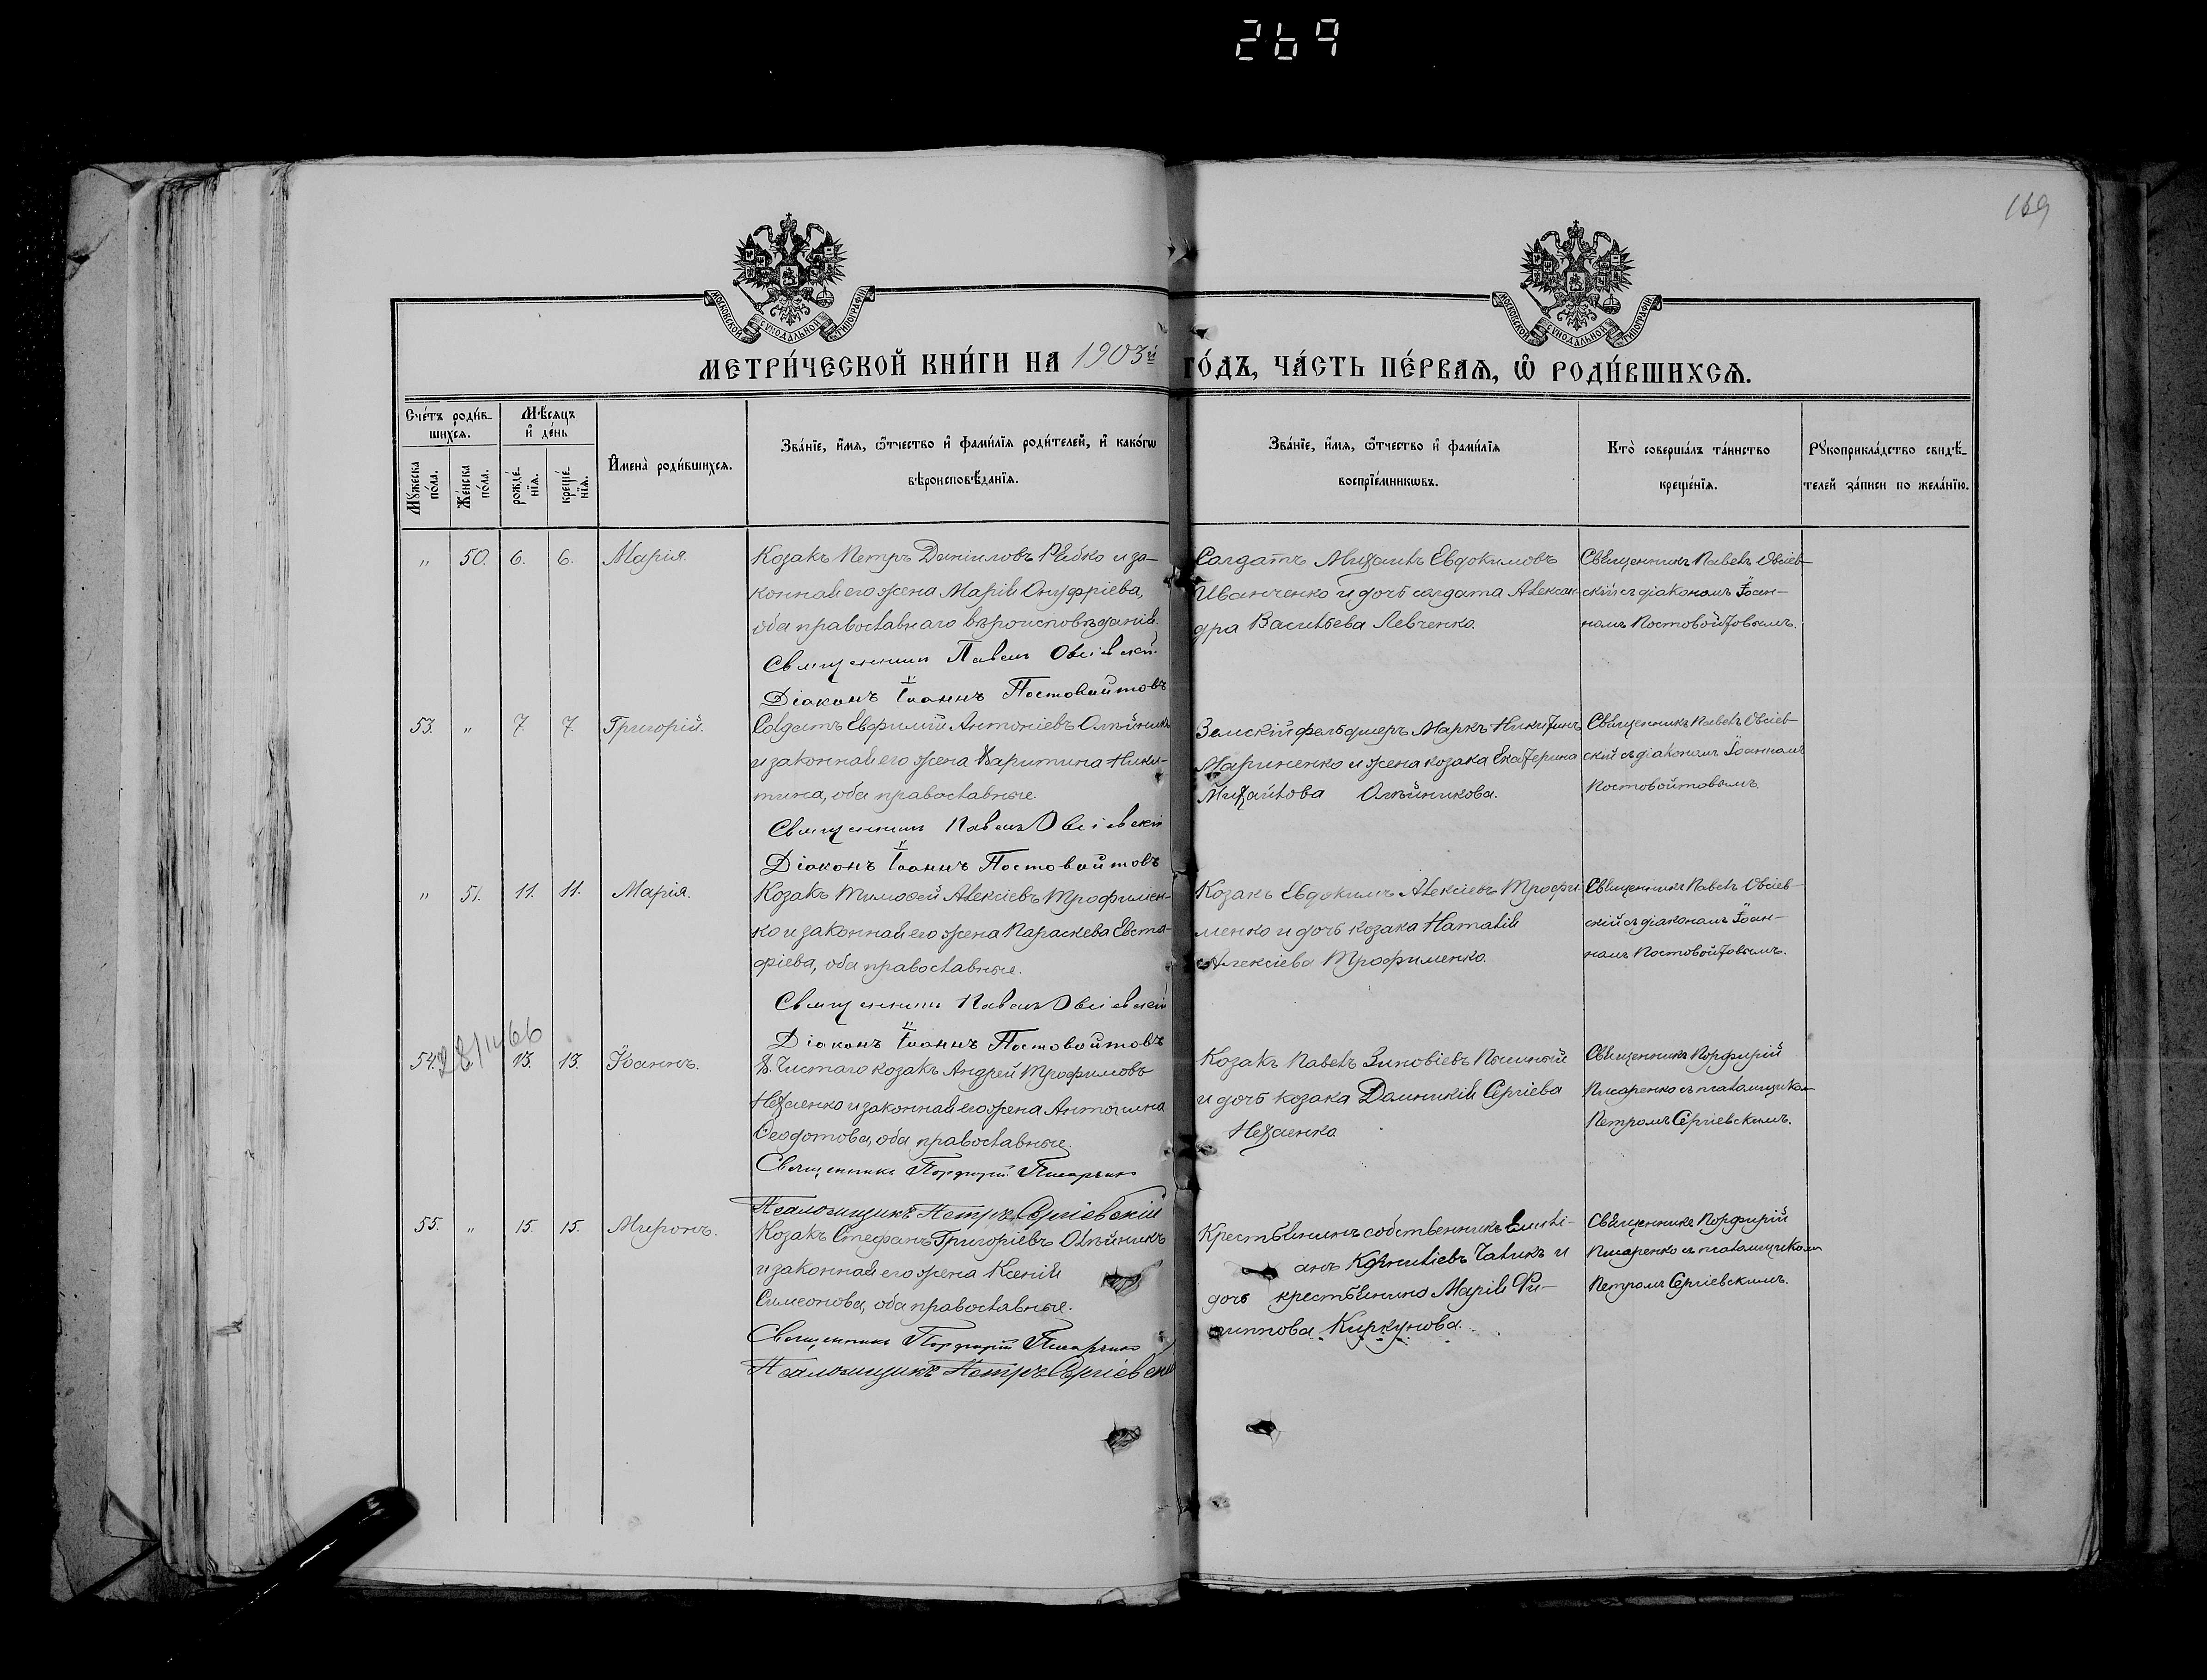 269
169
МОСКОВСКОЙ СУНОДАЛЬНОЙ ТИПОГРАФІИ
МОСКОВСКОЙ СУНОДАЛЬНОЙ ТИПОГРАФІИ
МЕТРИ́ЧЕСКОЙ КНИ́ГИ НА 1903й ГО́ДЪ, ЧА́СТЬ ПЕ́РВАѦ, Ѡ҆ РОДИ́ВШИХСѦ.
Сче́тъ роди́в-
шихсѧ.
Мѣ́сѧцъ
и҆ де́нь
Мꙋ́жеска
по́ла.
Же́нска
по́ла.
рожде́-
нїѧ.
креще́-
нїѧ.
И҆мена̀ роди́вшихсѧ.
Зва́нїе, и҆́мѧ, ѻ҆́тчество и҆ фами́лїѧ роди́телей, и҆ како́гѡ
вѣроисповѣ́данїѧ.
Зва́нїе, и҆́мѧ, ѻ҆́тчество и҆ фами́лїѧ
воспрїе́мникѡвъ.
Кто̀ соверша́лъ та́инство
креще́нїѧ.
Рꙋкоприкла́дство свидѣ́-
телей за́писи по жела́нїю.
" 50. 6. 6. Марія.
Козакъ Петръ Даніиловъ Рѣпко и за-
конная его жена Марія Онуфріева,
оба православнаго вѣроисповѣданія.
Священникъ Павелъ Овсіевскій
Діаконъ Іоаннъ Постовойтовъ
Солдатъ Михаилъ Евдокимовъ
Иванченко и дочь солдата Алексан-
дра Васильева Левченко.
Священникъ Павелъ Овсіев-
скій съ діакономъ Іоан-
номъ Постовойтовымъ.
53. " 7. 7. Григорій.
Солдатъ Евфимій Антоніевъ Олѣйникъ
и законная его жена Харитина Ники-
тина, оба православные.
Священникъ Павелъ Овсіевскій
Діаконъ Іоаннъ Постовойтовъ
Земскій фельдшеръ Маркъ Никитинъ
Мариненко и жена козака Екатерина
Михайлова Олѣйникова.
Священникъ Павелъ Овсіев-
скій съ діакономъ Іоанномъ
Постовойтовымъ.
" 51. 11. 11. Марія.
Козакъ Тимоѳей Алексіевъ Трофимен-
ко и законная его жена Параскева Евста-
фіева, оба православные.
Священникъ Павелъ Овсіевскій
Діаконъ Іоаннъ Постовойтовъ
Козакъ Евдокимъ Алексіевъ Трофи-
менко и дочь козака Наталія
Алексіева Трофименко.
Священникъ Павелъ Овсіев-
скій съ діакономъ Іоан-
номъ Постовойтовымъ.
54. 13. 13. Іоаннъ.
Х. Чистаго козакъ Андрей Трофимовъ
Нехаенко и законная его жена Антонина
Ѳеодотова, оба православные.
Священникъ Порфирій Писаренко
Псаломщикъ Петръ Сергіевскій
Козакъ Павелъ Зиновіевъ Пышный
и дочь козака Домникія Сергіева
Нехаенко.
Священникъ Порфирій
Писаренко съ псаломщикомъ
Петромъ Сергіевскимъ.
55. " 15. 15. Миронъ.
Козакъ Стефанъ Григоріевъ Олѣйникъ
и законная его жена Ксенія
Симеонова, оба православные.
Священникъ Порфирій Писаренко
Псаломщикъ Петръ Сергіевскій
Крестьянинъ собственникъ Емилі-
анъ Корниліевъ Чалихъ и
дочь крестьянина Марія Фи-
липпова Киркунова.
Священникъ Порфирій
Писаренко съ псаломщикомъ
Петромъ Сергіевскимъ.